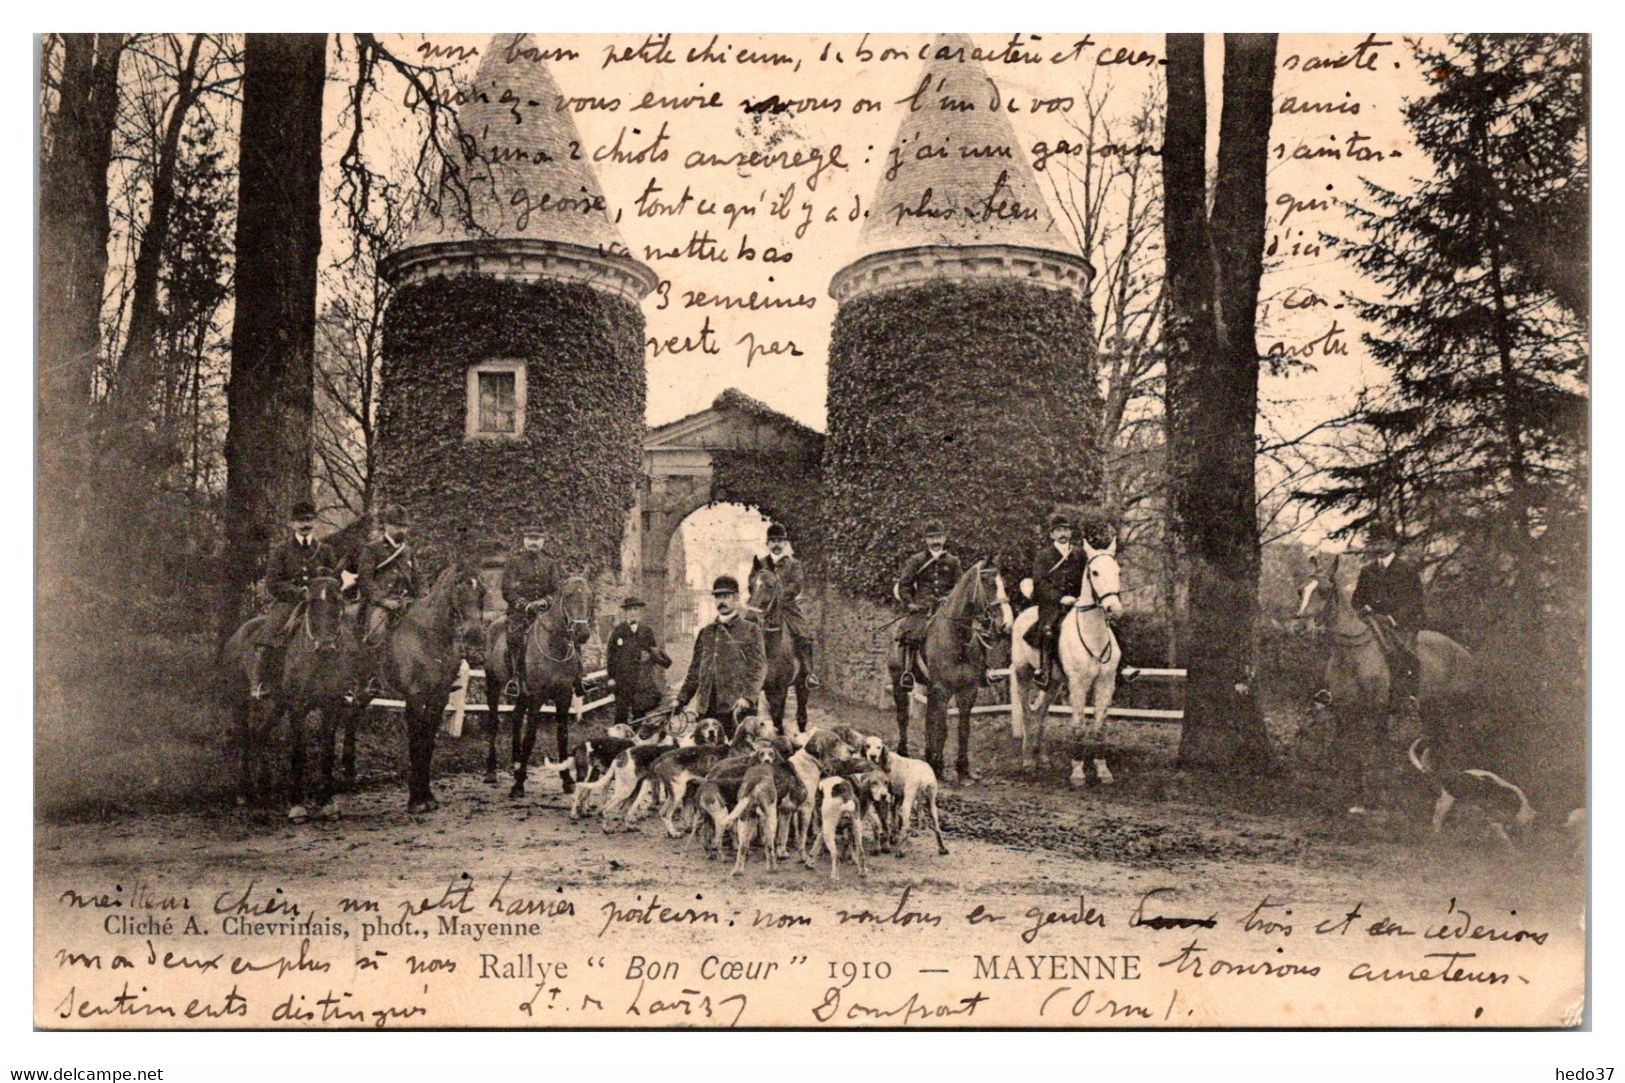 une bonne petite chienne, de bon caractère et ceres- sante.
Auriez-vous envie vous ou l'un de vos amis
d'un ou 2 chiots au sevrage : j'ai une gasconne sainton-
geoise, tout ce qu'il y a de plus bien, qui
va mettre bas d'ici
3 semeines con-
verte par notre
meilleur chien, un petit harrier poitevin : nous voulons en garder deux trois et en céderions
Cliché A. Chevrinais, phot., Mayenne
un ou deux en plus si nous trouvions amateurs.
Rallye " Bon Cœur " 1910 — MAYENNE
Sentiments distingués Lt. de Domfront (Orne).
delcampe.net
hedo37